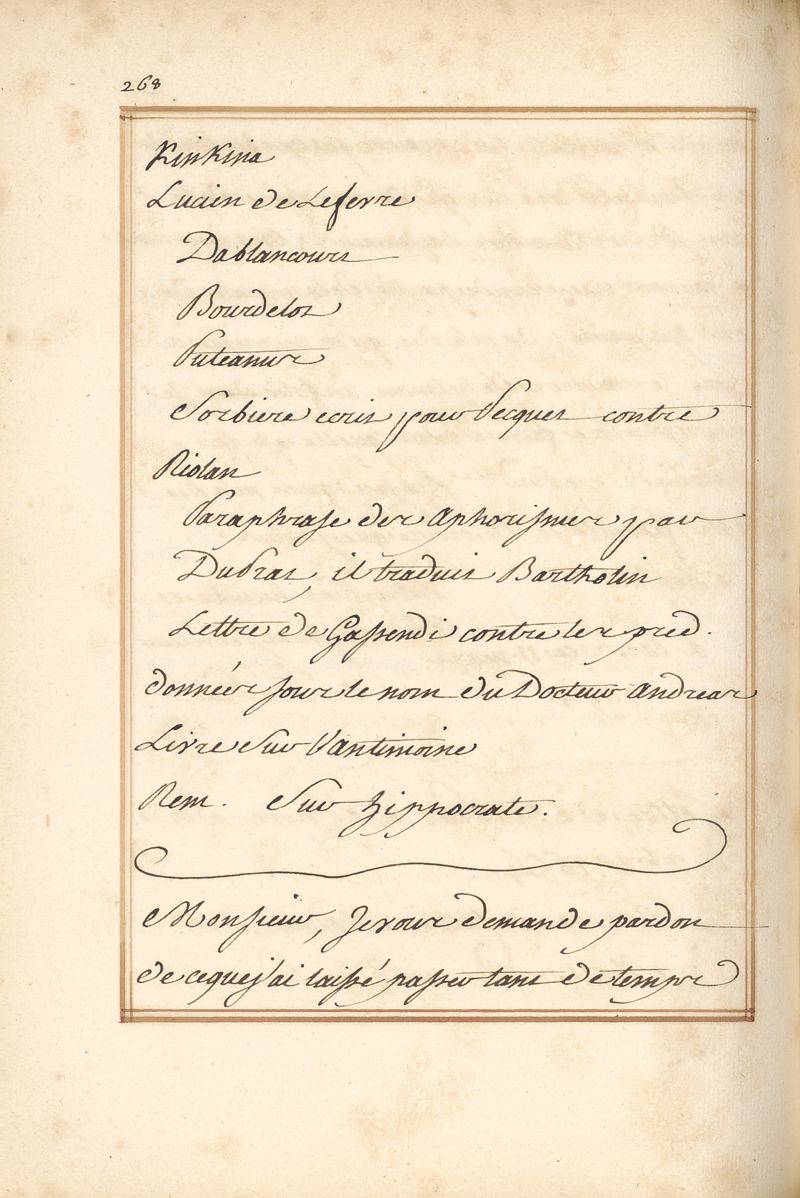 268
Kinkina
Lucien de Lefevre
Dablancourt
Bourdelot
Puteanus
Sorbiere ecrit pour Pecquet contre
Riolan
Paraphrase des Aphorismes par
Dufrat, il traduit Bartholin
Lettre de Gassendi contre les pred.
données sous le nom du Docteur Andreas
Livre sur l'antimoine
Rem. Sur hippocrate.
Monsieur, Je vous demande pardon
de ce que j'ai laissé passer tant de temps